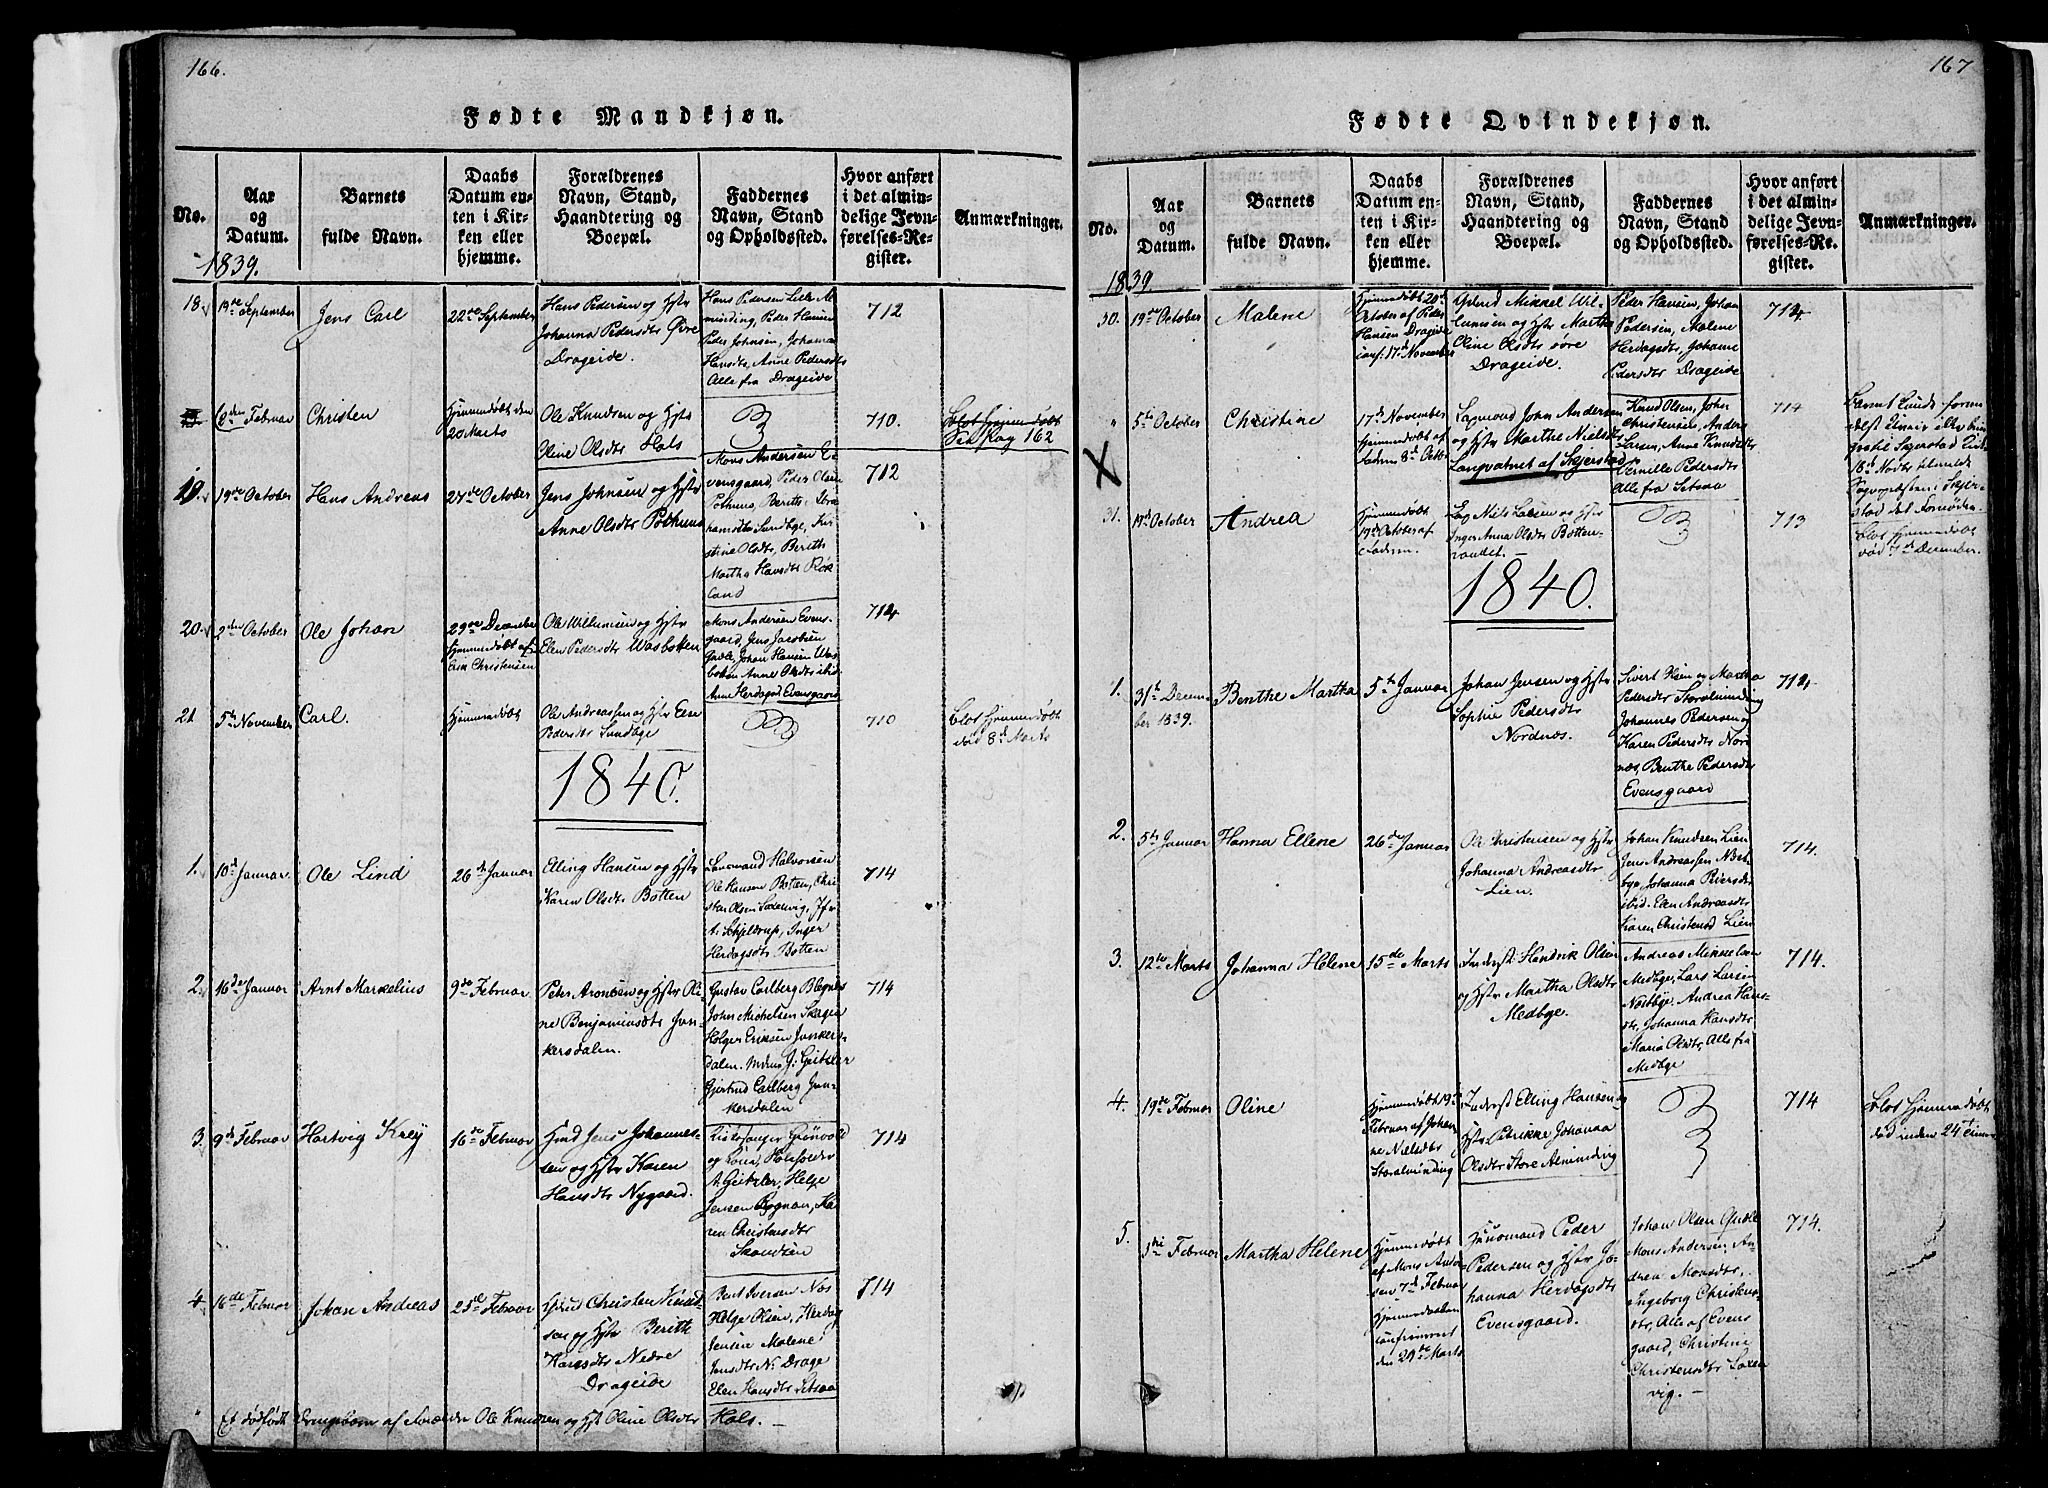 166.
Fødte Mandkjøn.
No.
Aar
og
Datum.
Barnets
fulde Navn.
Daabs
Datum en-
ten i Kir-
ken eller
hjemme.
Forældrenes
Navn, Stand,
Haandtering og
Boepæl.
Faddernes
Navn, Stand
og Opholdssted.
Hvor anført
i det almin-
delige Jevn-
førelses-Re-
gister.
Anmærkninger.
1839.
18.
19de September
Jens Carl
22de September
Hans Pedersen og Hstr
Johanna Pedersdtr Øvre
Drageide.
Hans Pedersen Lille Al-
minding, Peder Hansen
Peder Johnsen, Johanna
Hansdtr, Anne Pedersdtr
Alle fra Drageide
712
6den Februar
Christen
Hjemmedøbt den
20 Marts
Ole Knudsen og Hstr
Oline Olsdtr Hals
710.
Blot hjemmedøbt
See Pag 162
19.
19de October
Hans Andreas
27de October
Jens Johnsen og Hstr
Anne Olsdtr Pothuus
Mons Andersen E-
vensgaard, Peder Olsen
Pothuus, Berith
Sundbye,
Olsdtr, Berith
Martha Hansdtr Rok-
land
712
20.
2den October
Ole Johan
29de December
Hjemmedøbt af
Christensen
Ole Willumsen og Hstr
Elen Pedersdtr Wasbotten
Mons Andersen Evens-
gaard, Jens Jacobsen
Johan Hansen Was-
botten Anne Olsdtr ibid
Anne Herdagsd Evensgaard
714
21
5te November
Carl.
Hjemmedøbt
Ole Andreassen og Hstr Else
Pedersdtr Sundbye
710
Blot hjemmedøbt
død 8d Marts
1840.
1.
10d Januar.
Ole Lind
26de Januar
Elling Hansen og Hstr
Karen Olsdtr Botten
Halvorsen
Ole Hansen Botten, Chri-
stian Olsen Saxenvig, Jfr
A: Schjelderup, Inger
Herdagsdtr Botten
714
2.
16de Januar
Arnt Markelius
9de Februar
Peter Aronsen og Hstr Oli-
ne Benjaminsdtr Jun-
kersdalen.
Gustav Carlberg
John Michelsen
Holger Eriksen Junkers-
dalen. G: Geitzler
Gjertrud Carlberg Jun-
kersdalen
714
3.
9d Februar
Hartvig Krey
16de Februar
Hmd Jens Johannes-
sen og Hstr Karen
Hansdtr Nygaard.
Grønvold
og
A. Geitzler, Helge
Jensen Ka-
ren Christensdtr
714
4.
16de Februar
Johan Andreas
23de Februar
Hmd Christen Knud-
sen og Hstr Berith
Hansdtr Nedre
Drageide
Iversen Næs
Helge Olsen, Herdag
Jensen Malene
Jensdtr N. Drage
Elen Hansdtr Setsaa
714
" Et dødfødt Drengebarn af Forældre Ole Knudsen og Hst Oline Olsdtr Hals. —
167
Fødte Qvindekjøn.
No.
Aar
og
Datum.
Barnets
fulde Navn.
Daabs
Datum en-
ten i Kir-
ken eller
hjemme.
Forældrenes
Navn, Stand,
Haandtering og
Boepæl.
Faddernes
Navn, Stand
og Opholdssted.
Hvor anført
i det almin-
delige Jevn-
førelses-Re-
gister.
Anmærkninger.
1839
30.
19de October
Malene
Hjemmedøbt 20de
October af Peder
Hansen Drageide
conf. 17d November
Mikkel Wil-
lumsen og Hstr Martha
Oline Olsdtr øvre
Drageide.
Peder Hansen, Johan
Pedersen, Malene
Herdagsdtr, Johanne
Pedersdtr Drageide
714
"
5te October
Christine
17d November
Hjemmedøbt af
Faderen 8d Octbr
Lapmand John Andersen
og Hstr Marthe Nielsdtr
Langvatnet af Skjerstad
Knud Olsen, John
Christensen, Anders
Larsen, Anne Knudsdtr
Pernille Pedersdtr
Alle fra Setsaa
714
X
31.
19d October
Andrea
Hjemmedøbt
19d October af
Faderen.
Lap Niels Larsen og Hstr
Inger Anna Olsdtr Botten-
vandet. —
713
Blot hjemmedøbt
død 7d December.
1840.
1.
31te Decem-
ber 1839.
Benthe Martha
5te Januar
Johan Jensen og Hstr
Sophie Pedersdtr
Nordnæs.
Sivert Olsen og Martha
Pedersdtr Storalminding
Johannes Pedersen og
Karen Pedersdtr Nord-
næs, Benthe Pedersdtr
Evensgaard
714
2.
5te Januar
Hanna Ellene
26de Januar
Ole Christensen og Hstr
Johanna Andreasdtr
Lien.
Johan Knudsen Lien
Jens Andreassen Næst-
bye, Johanna Pedersdtr
ibid. Elen Andreasdtr
Karen Christensd Lien
714.
3.
12te Marts
Johanna Helene
15de Marts
Inderst Hendrik Olsen
og Hstr Martha Olsdtr
Medbye.
Andreas Mikkelsen
Medbye, Lars Larsen
Næstbye, Andrea Hans-
dtr, Johanna Hansdtr
Maria Olsdtr, Alle fra
Medbye
714.
4.
19de Februar
Oline
Hjemmedøbt 19de
Februar af Johan-
ne Nielsdtr
Storalminding
Inderst Elling Hansen og
Hstr Petrikke Johanna
Olsdtr Store Alminding
714
Blot hjemmedøbt
død inden 24 Timer
5.
Februar
Martha Helene
Hjemmedøbt
af Mons Ander-
sen 7d Februar
Hjemmedaaben
confirmeret
den 29de Marts
Huusmand Peder
Pedersen og Hstr Jo-
hanna Herdagsdtr
Evensgaard.
Johan Olsen
Mons Andersen, An-
drea Monsdtr,
Ingeborg Christens-
dtr, Alle af Evens-
gaard, Christine
Christensdtr Saxen-
vig. —
714.